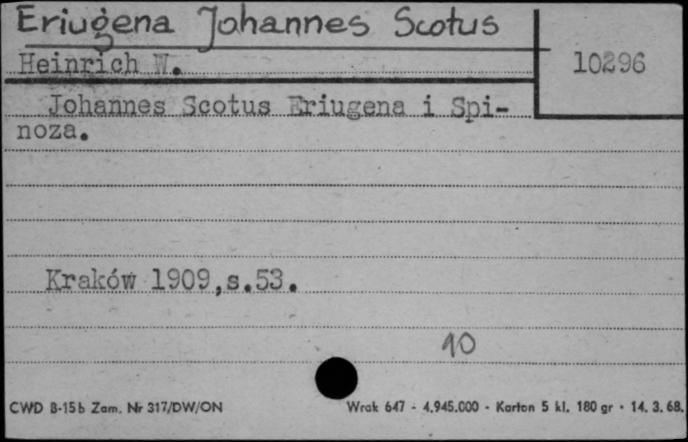 Eriugena Johannes Scotus
Heinrich W.
10296
Johannes Scotus Eriugena i Spi-
noza.
Kraków 1909,s.53.
10
CWD B-15b Zam. Nr 317/DW/ON
Wrak 647 - 4.945.000 - Karton 5 kl. 180 gr - 14. 3. 68.